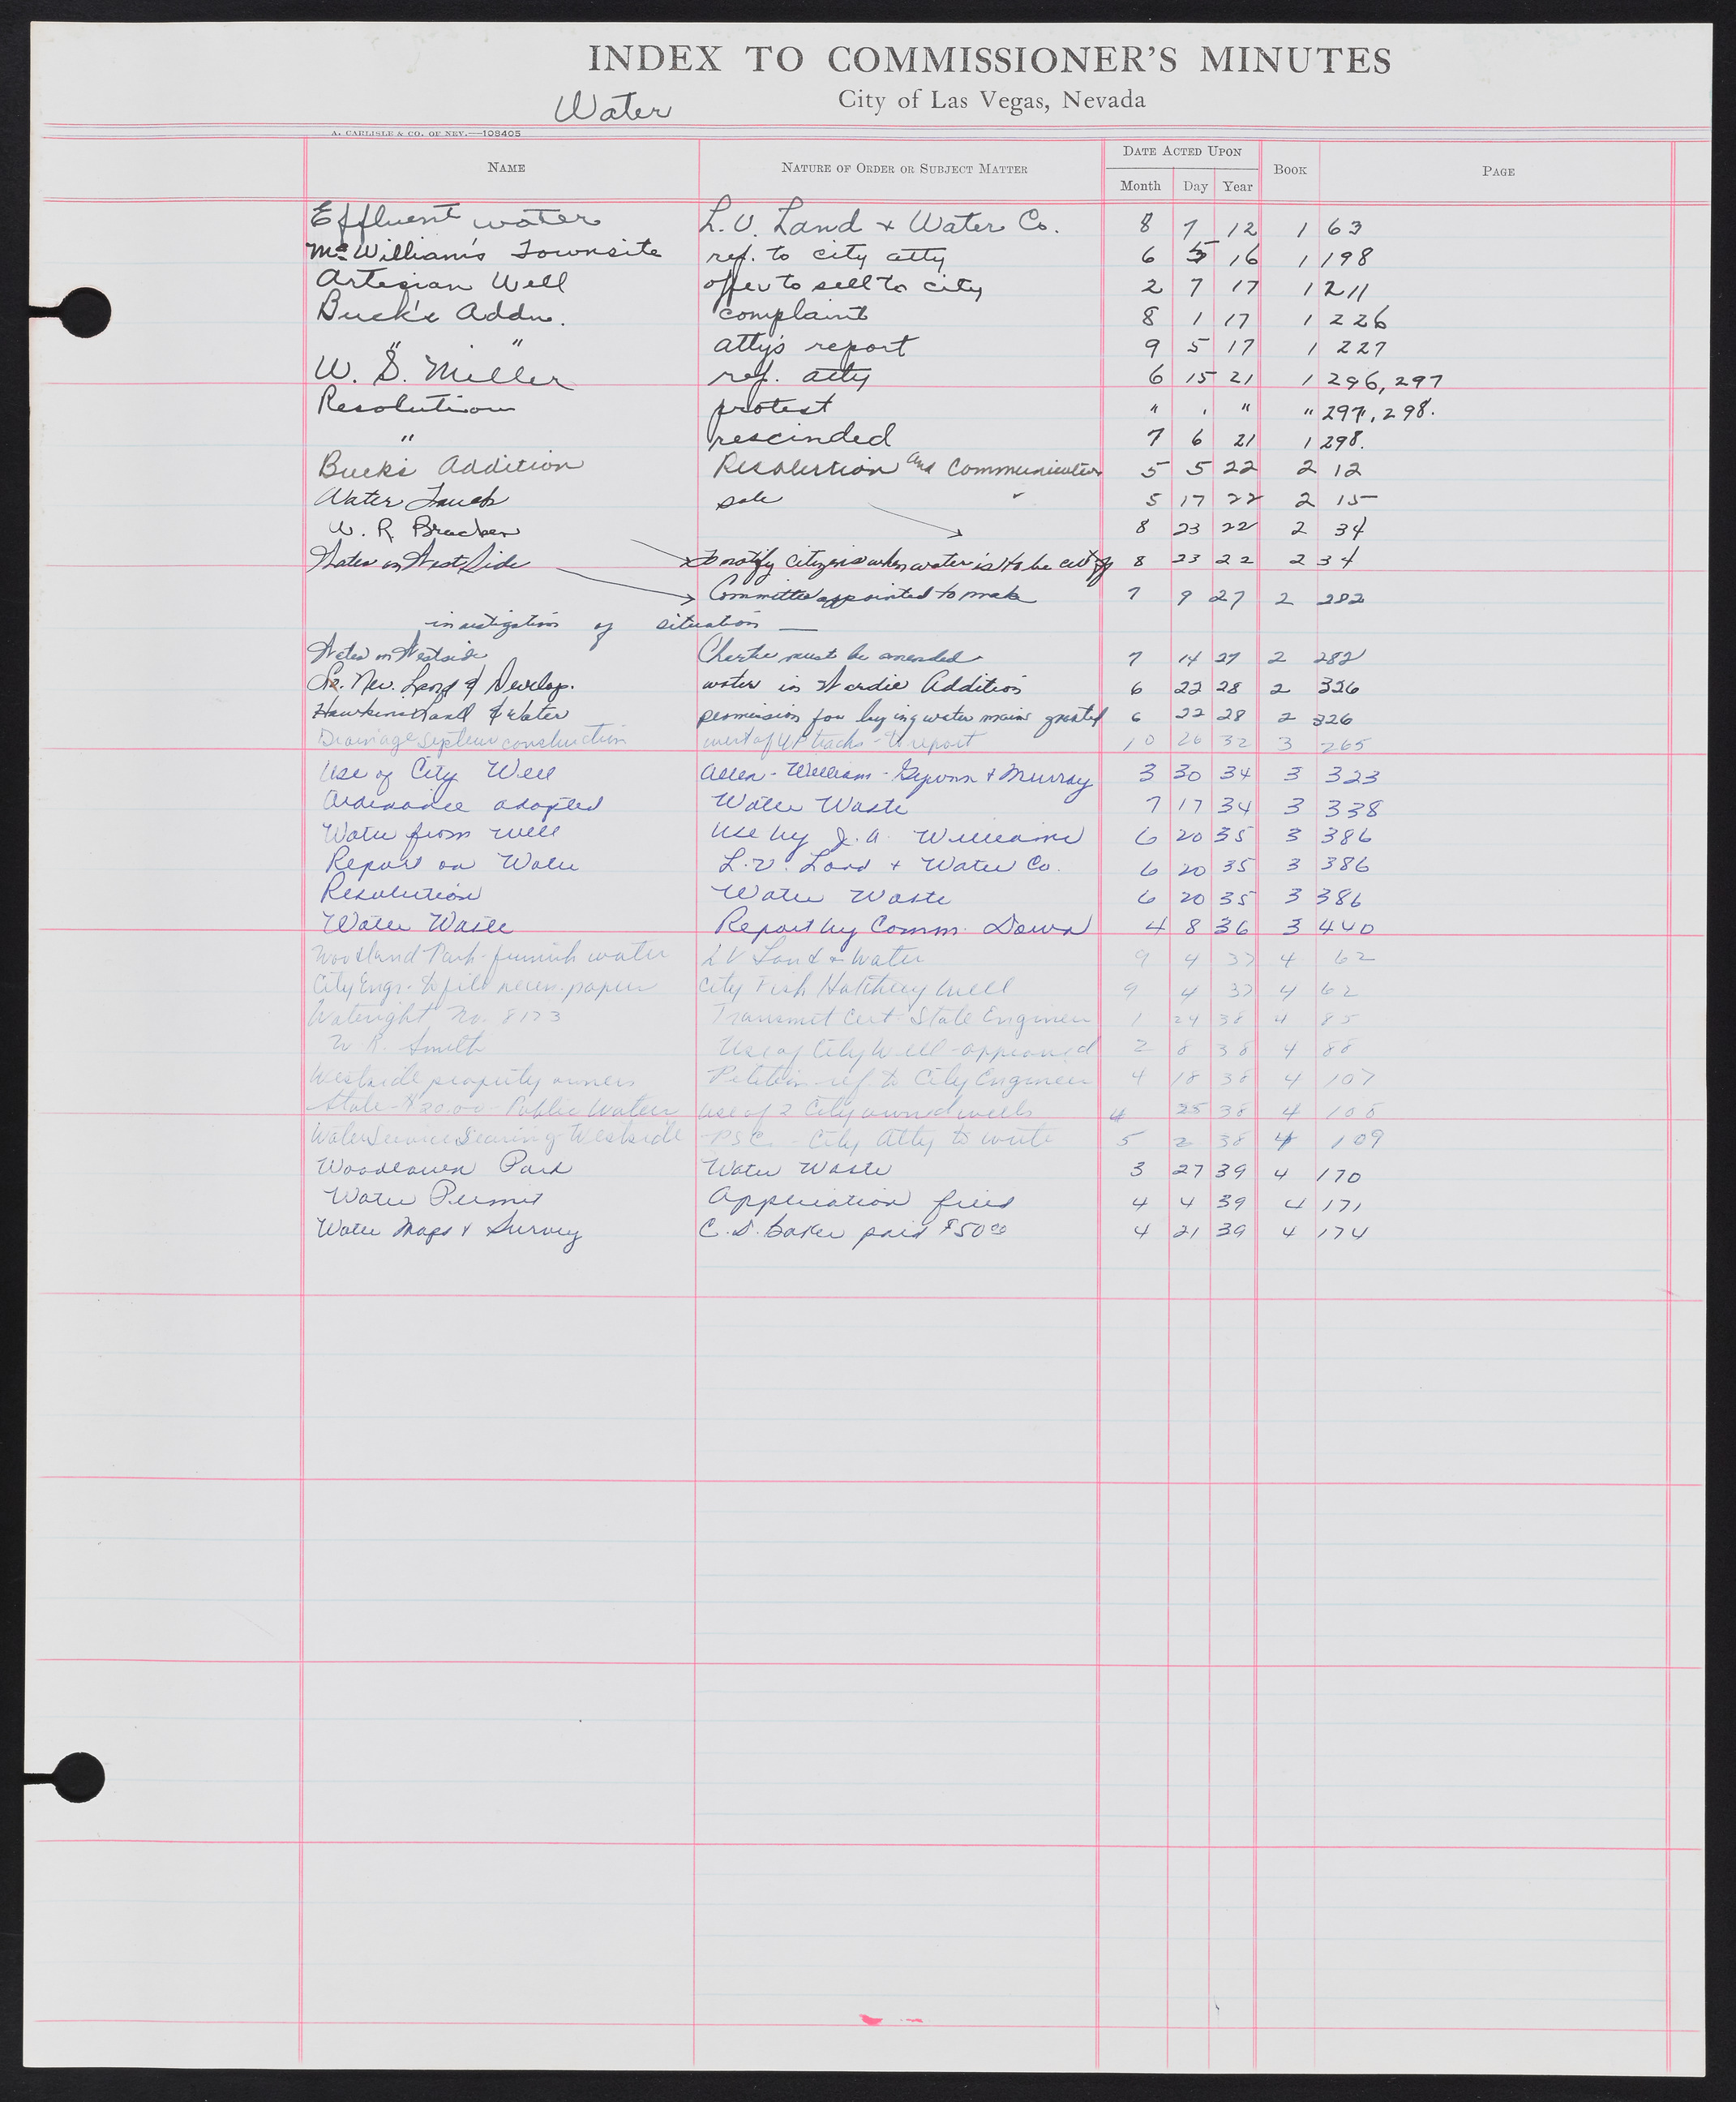 INDEX TO COMMISSIONER'S MINUTES
City of Las Vegas, Nevada
Water
A. CARLISLE & CO. OF NEV.—108405
NAME NATURE OF ORDER OR SUBJECT MATTER DATE ACTED UPON BOOK PAGE
Month Day Year
Effluent water L.V. Land & Water Co. 8 7 12 1 63
McWilliam's Townsite ref. to city atty 6 5 16 1 198
Artesian Well offer to sell to city 2 7 17 1 211
Buck's Addn. complaint 8 1 17 1 226
" " atty's report 9 5 17 1 227
W. S. Miller ref. atty 6 15 21 1 296, 297
Resolution protest " " " " 297, 298.
" rescinded 7 6 21 1 298.
Buck's Addition Resolution and Communication 5 5 22 2 12
Water sale 5 17 22 2 15
W. R. Bracken 8 23 22 2 34
Water on West Side to notify citizens when water is to be cut off 8 23 22 2 34
Committee appointed to make 7 9 27 2 282
investigation of situation —
Water on Westside Charter must be amended 7 14 27 2 282
So. Nev. Land & Develop. water in Hardie Addition 6 22 28 2 326
Hawkins Land & Water permission for laying water mains granted 6 22 28 2 326
Drainage System construction west of UP tracks - to report 10 26 32 3 265
Use of City Well Allen - William - & Murray 3 30 34 3 323
Ordinance adopted Water Waste 7 17 34 3 338
Water from well Use by J. A. Williams 6 20 35 3 386
Report on Water L.V. Land & Water Co. 6 20 35 3 386
Resolution Water Waste 6 20 35 3 386
Water Waste Report by Comm. Down 4 8 36 3 440
Woodland Park - furnish water LV Land & Water 9 4 37 4 62
City Engr. to file necess. papers City Fish Hatchery Well 9 4 37 4 62
Waterright No. 8123 Transmit Cert. State Engineer 1 24 38 4 85
W. R. Smith Use of City Well - approved 2 8 38 4 88
Westside property owners Petition ref. to City Engineer 4 18 38 4 107
State - $20.00 - Public Water Use of 2 City owned wells 4 25 38 4 108
Water Service Hearing Westside PSC. - City Atty to write 5 2 38 4 109
Woodlawn Park Water Waste 3 27 39 4 170
Water Permit Application filed 4 4 39 4 171
Water Maps & Survey C. D. Baker paid $50 00 4 21 39 4 174